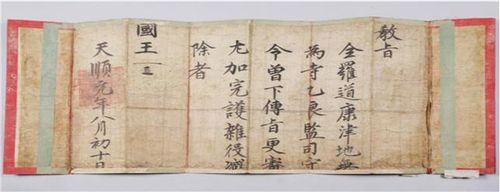 教旨
全羅道康津地無
為寺乙良監司守
令曾下傳旨更審
尤加完護雜役減
除者
國王
天順元年八月初十日